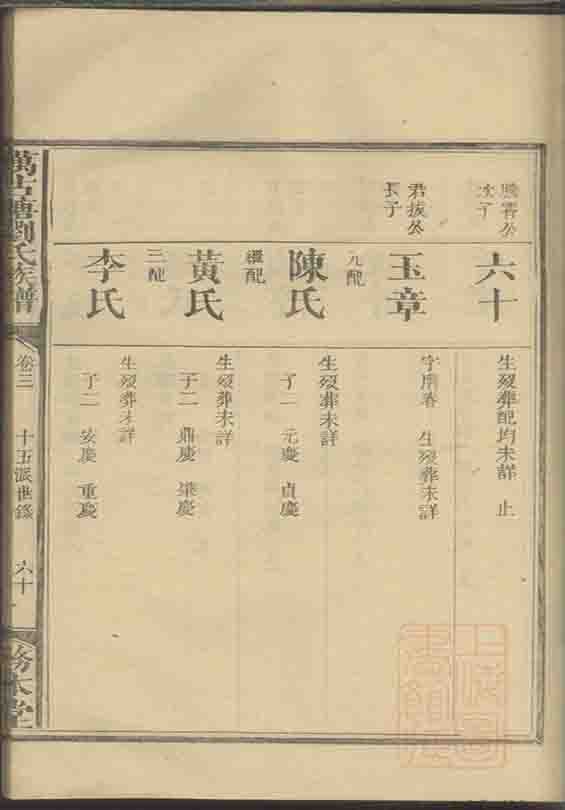 公
次子
六十
生歿葬配均未詳 止
君拔公
長子
玉章
字 生歿葬未詳
元配
陳氏
生歿葬未詳
子二 元慶 貞慶
繼配
黃氏
生歿葬未詳
子二 鼎慶 慶
三配
李氏
生歿葬未詳
子二 安慶 重慶
萬古塘劉氏族譜
卷三
十五派世錄
六十
務本堂